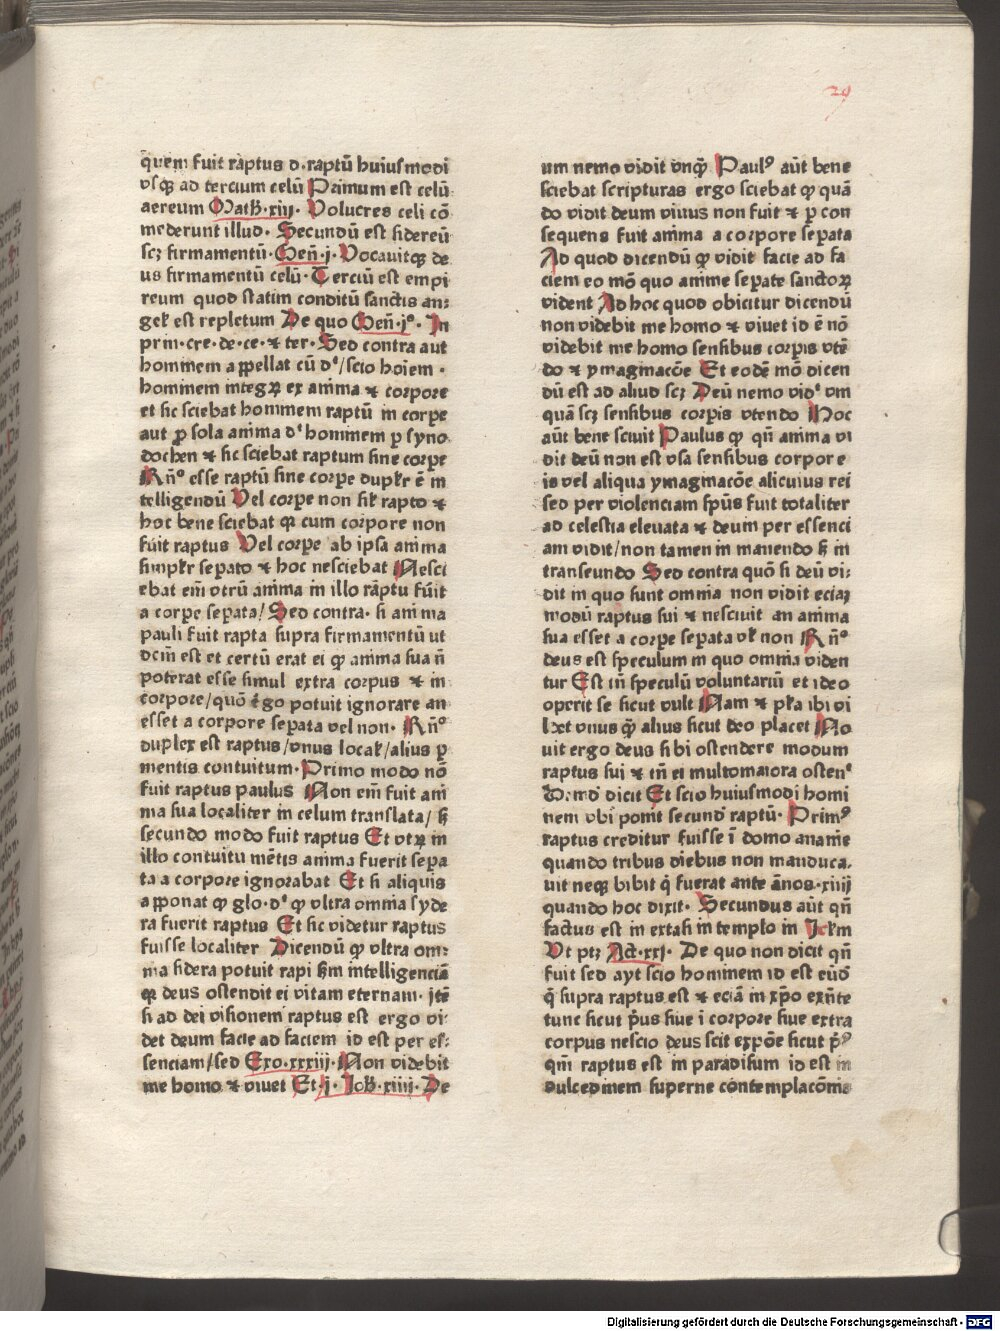 29
quem fuit raptus d. raptū huiusmodi
vsqꝫ ad tercium celū Primum est celū
aereum Math·xiij· Volucres celi cō
mederunt illud· Secundū est sidereū
scꝫ firmamentū· Gen̄·j· Vocauitqꝫ de
us firmamentū celū· Terciū est empi
reum quod statim conditū sanctis an⸗
gel̄ est repletum De quo Gen̄·jº· In
prin·cre·de·ce·⁊ ter· Sed contra aut
hominem appellat cū dᵗ/scio hoīem·
hominem integꝝ ex anima ⁊ corpore
et sic sciebat hominem raptū in corpe
aut ꝓ sola anima dᵗ hominem p syno
dochen ⁊ sic sciebat raptum sine corpe
Rn̄º esse raptū sine corpe duplr̄ ē in
telligendū Vel corpe non sil̄ rapto ⁊
hoc bene sciebat ꝙ cum corpore non
fuit raptus Vel corpe ab ipsa anima
simplr̄ sepato ⁊ hoc nesciebat Nesci
ebat em̄ vtrū anima in illo raptu fuit
a corpe sepata/ Sed contra· si anima
pauli fuit rapta supra firmamentū ut
dcm̄ est et certū erat ei ꝙ anima sua n̄
poterat esse simul extra corpus ⁊ in
corpore/quō ēgo potuit ignorare an
esset a corpore sepata vel non· Rn̄º
duplex est raptus/vnus local̄/alius ꝑ
mentis contuitum· Primo modo nō
fuit raptus paulus Non em̄ fuit ani
ma sua localiter in celum translata/ sꝫ
secundo modo fuit raptus Et vtꝝ in
illo contuitu mētis anima fuerit sepa
ta a corpore ignorabat Et si aliquis
apponat ꝙ glo·dᵗ ꝙ vltra omnia syde
ra fuerit raptus Et sic videtur raptus
fuisse localiter Dicendū ꝙ vltra om⸗
nia sidera potuit rapi sm̄ intelligenciā
qꝫ deus ostendit ei vitam eternam· itē
si ad dei visionem raptus est ergo vi⸗
det deum facie ad faciem id est per es⸗
senciam/sed Exo·xxxiij· Non videbit
me homo ⁊ viuet Et·j· Joh·xiiij· De
um nemo vidit vnqꝫ Paulꝰ aūt bene
sciebat scripturas ergo sciebat ꝙ quā
do vidit deum viuus non fuit ⁊ ꝑ con
sequens fuit anima a corpore sepata
Ad quod dicendū ꝙ vidit facie ad fa
ciem eo mō quo anime sepate sanctoꝝ
vident Ad hoc quod obicitur dicendū
non videbit me homo ⁊ viuet id ē nō
videbit me homo sensibus corpis vtē
do ⁊ ymaginacōe Et eodē mō dicen
dū est ad aliud scꝫ Deū nemo vidᵗ vm
quā scꝫ sensibus corpis vtendo Hoc
aūt bene sciuit Paulus ꝙ qn̄ anima vi
dit deū non est vsa sensibus corpore
is vel aliqua ymaginacōe alicuius rei
sed per violenciam sp̄us fuit totaliter
ad celestia eleuata ⁊ deum per essenci
am vidit/non tamen in manendo sꝫ in
transeundo Sed contra quō si deū vi⸗
dit in quo sunt omnia non vidit eciaꝫ
modū raptus sui ⁊ nesciuit an anima
sua esset a corpe sepata vl̄ non Rn̄º
deus est speculum in quo omnia viden
tur Est in̄ speculū voluntariū et ideo
operit se sicut vult Nam ⁊ pl̄a ibi vi
l det vnus qꝫ alius sicut deo placet No
uit ergo deus sibi ostendere modum
raptus sui ⁊ in̄ ei multomaiora ostenᵗ
dicit Et scio huiusmodi homi
nem vbi ponit secund̄ raptū· Primꝰ
raptus creditur fuisse ī domo ananie
quando tribus diebus non manduca⸗
uit neqꝫ bibit q̇ fuerat ante ānos·xiiij
quando hoc dixit· Secundus aūt qn̄
factus est in extasi in templo in Jrl̄m
Vt ptꝫ Act·xxj· De quo non dicit qn̄
fuit sed ayt scio hominem id est eūd̄
q̇ supra raptus est ⁊ eciā in xp̄o exn̄te
tunc sicut p̄us siue ī corpore siue extra
corpus nescio deus scit expōe sicut p̄ꝰ
qm̄ raptus est in paradisum id est in
dulcedinem superne contemplacōnis
Digitalisierung gefördert durch die Deutsche Forschungsgemeinschaft - DFG